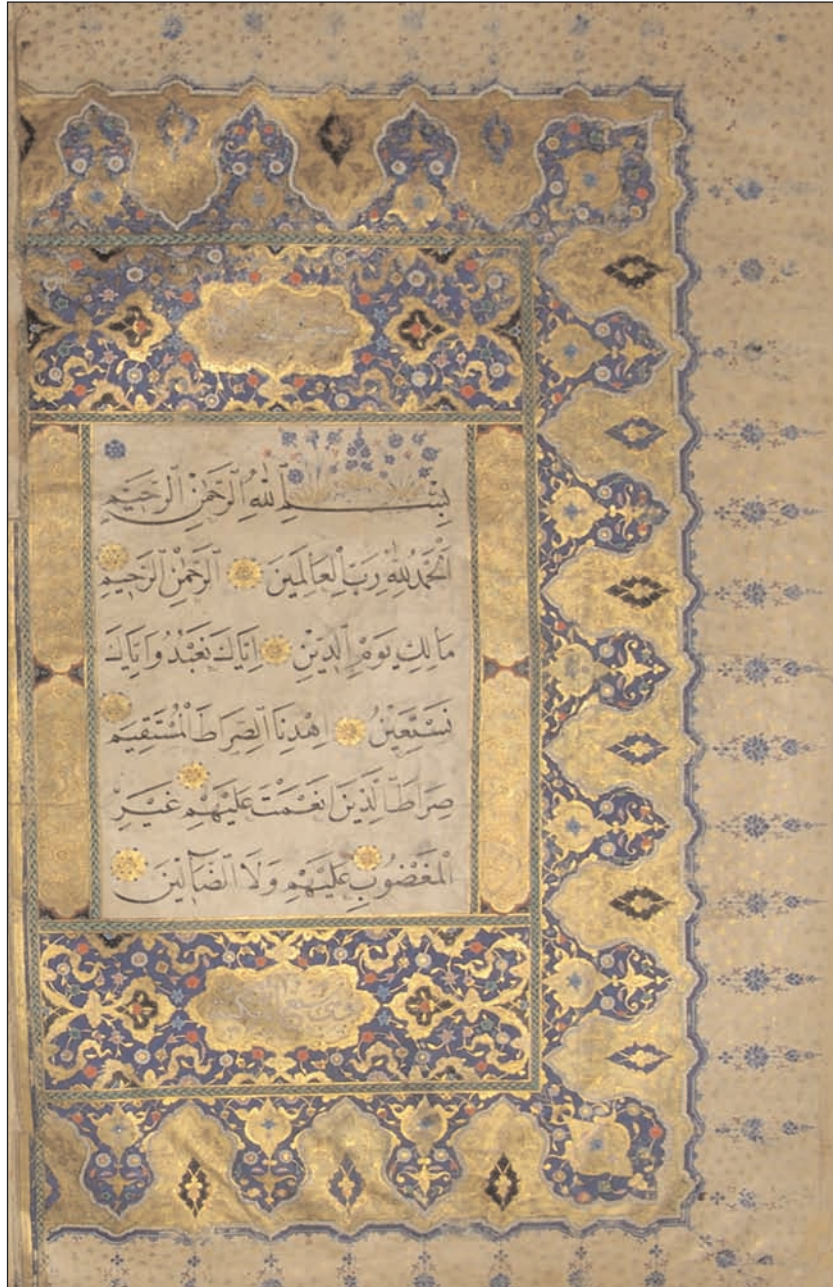 بِسْمِ اللّٰهِ الرَّحْمٰنِ الرَّحِيمِ
اَلْحَمْدُ لِلّٰهِ رَبِّ الْعَالَمِينَ الرَّحْمٰنِ الرَّحِيمِ
مَالِكِ يَوْمِ الدِّينِ اِيَّاكَ نَعْبُدُ وَاِيَّاكَ
نَسْتَعِينُ اِهْدِنَا الصِّرَاطَ الْمُسْتَقِيمَ
صِرَاطَ الَّذِينَ اَنْعَمْتَ عَلَيْهِمْ غَيْرِ
الْمَغْضُوبِ عَلَيْهِمْ وَلَا الضَّآلِّينَ